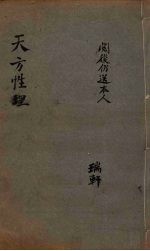 閱後仍送本人
瑞軒
天方性理